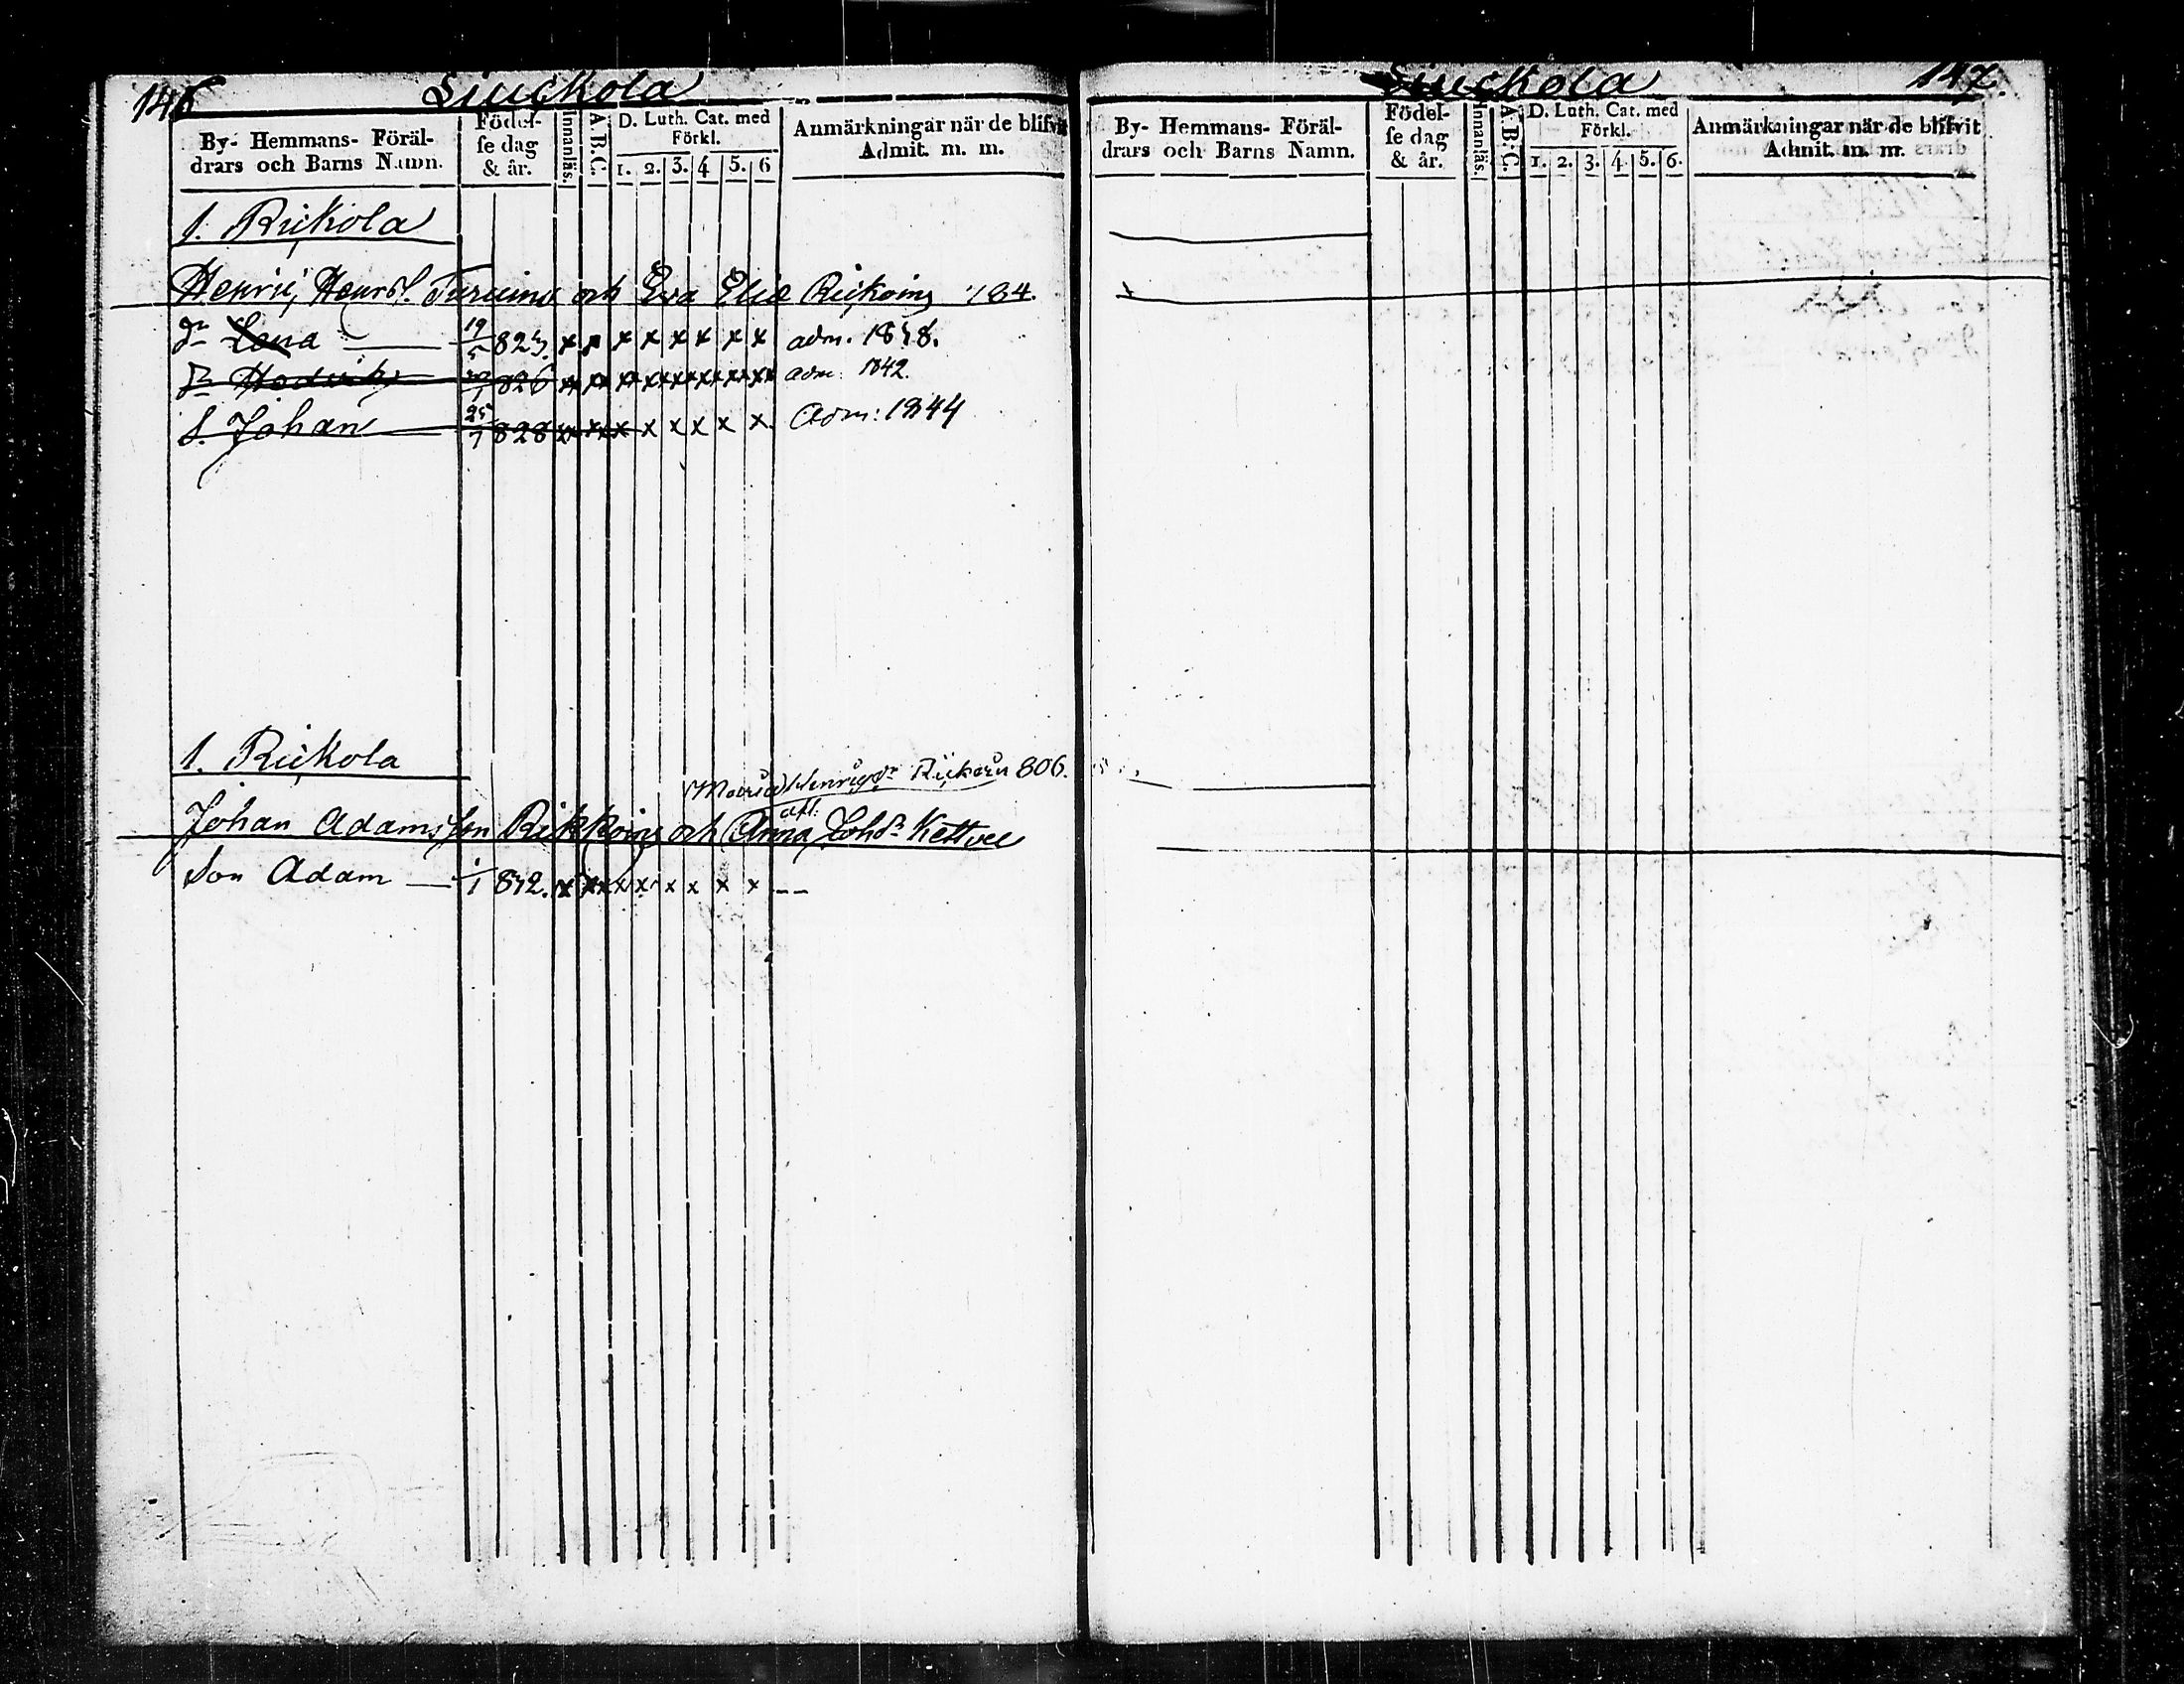 146 Siuckola
By- Hemmans- Föräl-
drars och Barns Namn.
Födel-
se dag
& år.
Innanläs.
A.B.C.
D. Luth. Cat. med
Förkl.
1. 2. 3. 4 5. 6
Anmärkningar när de blifvit
Admit. m. m.
1. Riickola
Henric Henrs. och Eva Elia 184.
Dr Lena 19/5 823. x x x x x x x x adm. 1838.
Dr Hedvik 826 x x x x x x x x adm: 1842.
S. Johan 25/7 828 x x x x x x x x Adm: 1844
1. Riickola
Maria Henricsdr 806.
afl.
Johan Adamsson och Anna Johdr
Son Adam 1/1 832. x x x x x x x x --
Siuckola 147.
By- Hemmans- Föräl-
drars och Barns Namn.
Födel-
se dag
& år.
Innanläs.
A.B.C.
D. Luth. Cat. med
Förkl.
1. 2. 3. 4. 5. 6.
Anmärkningar när de blifvit
Admit. m. m.